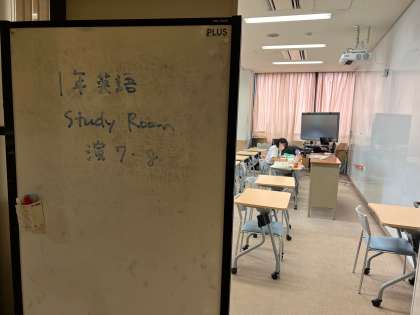 PLUS
1年英語
Study Room
演7-g